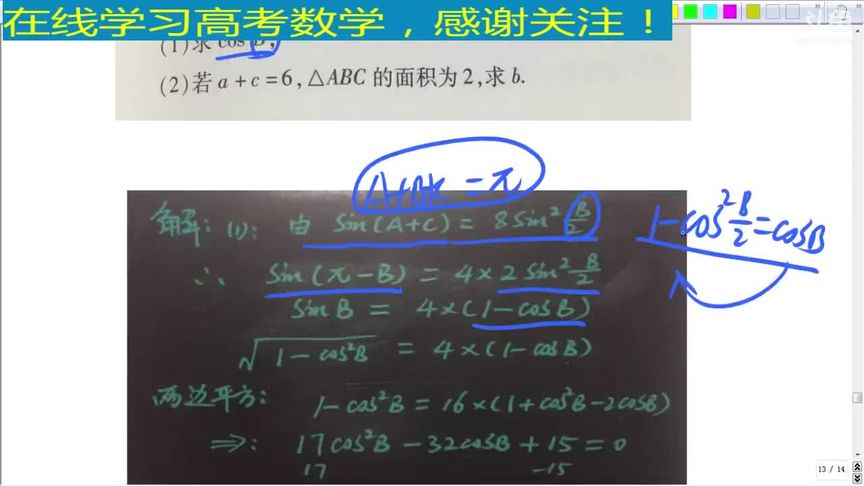 在线学习高考数学，感谢关注！
(1)求 cos B;
(2)若 a+c=6,△ABC 的面积为2,求 b.
A+B+C=π
解: (1): 由 Sin(A+C) = 8Sin²B/2
1-cos²B/2=cosB
∴ Sin(π-B) = 4×2Sin²B/2
SinB = 4×(1-cosB)
√(1-cos²B) = 4×(1-cosB)
两边平方: 1-cos²B = 16×(1+cos²B-2cosB)
⇒: 17cos²B-32cosB+15=0
17 -15
13 / 14